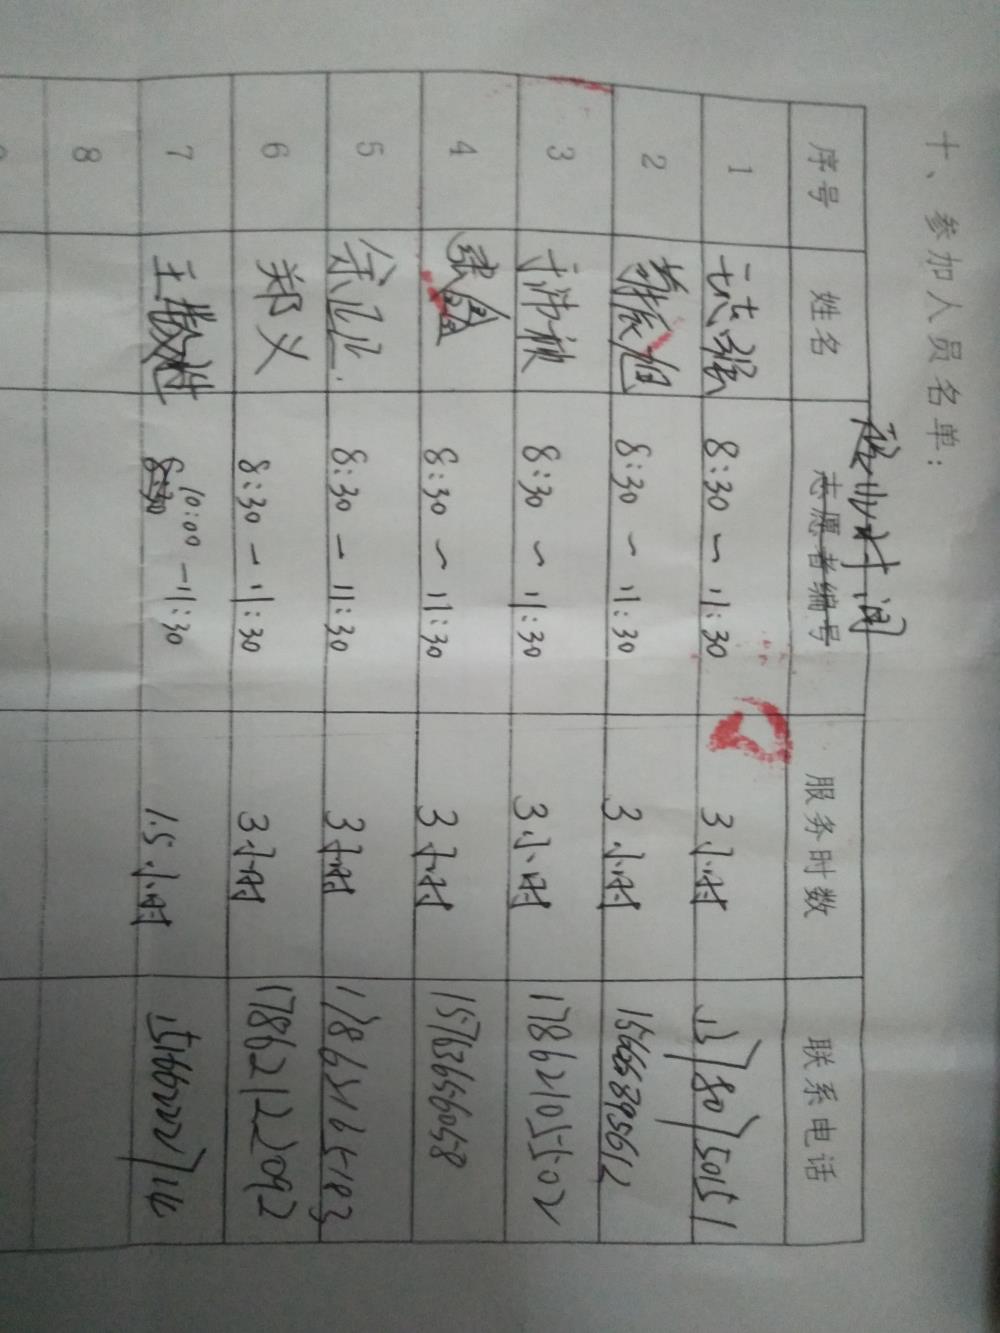 十、参加人员名单：
序号 姓名 志愿者编号 服务时数 联系电话
时间
1 王志强 8:30~11:30 3小时
2 8:30~11:30 3小时 15666895612
3 8:30~11:30 3小时 17862105502
4 张鑫 8:30~11:30 3小时 15763656058
5 8:30-11:30 3小时 17865165183
6 郑义 8:30-11:30 3小时 17862122092
7 10:00-11:30 1.5小时
8:30
8